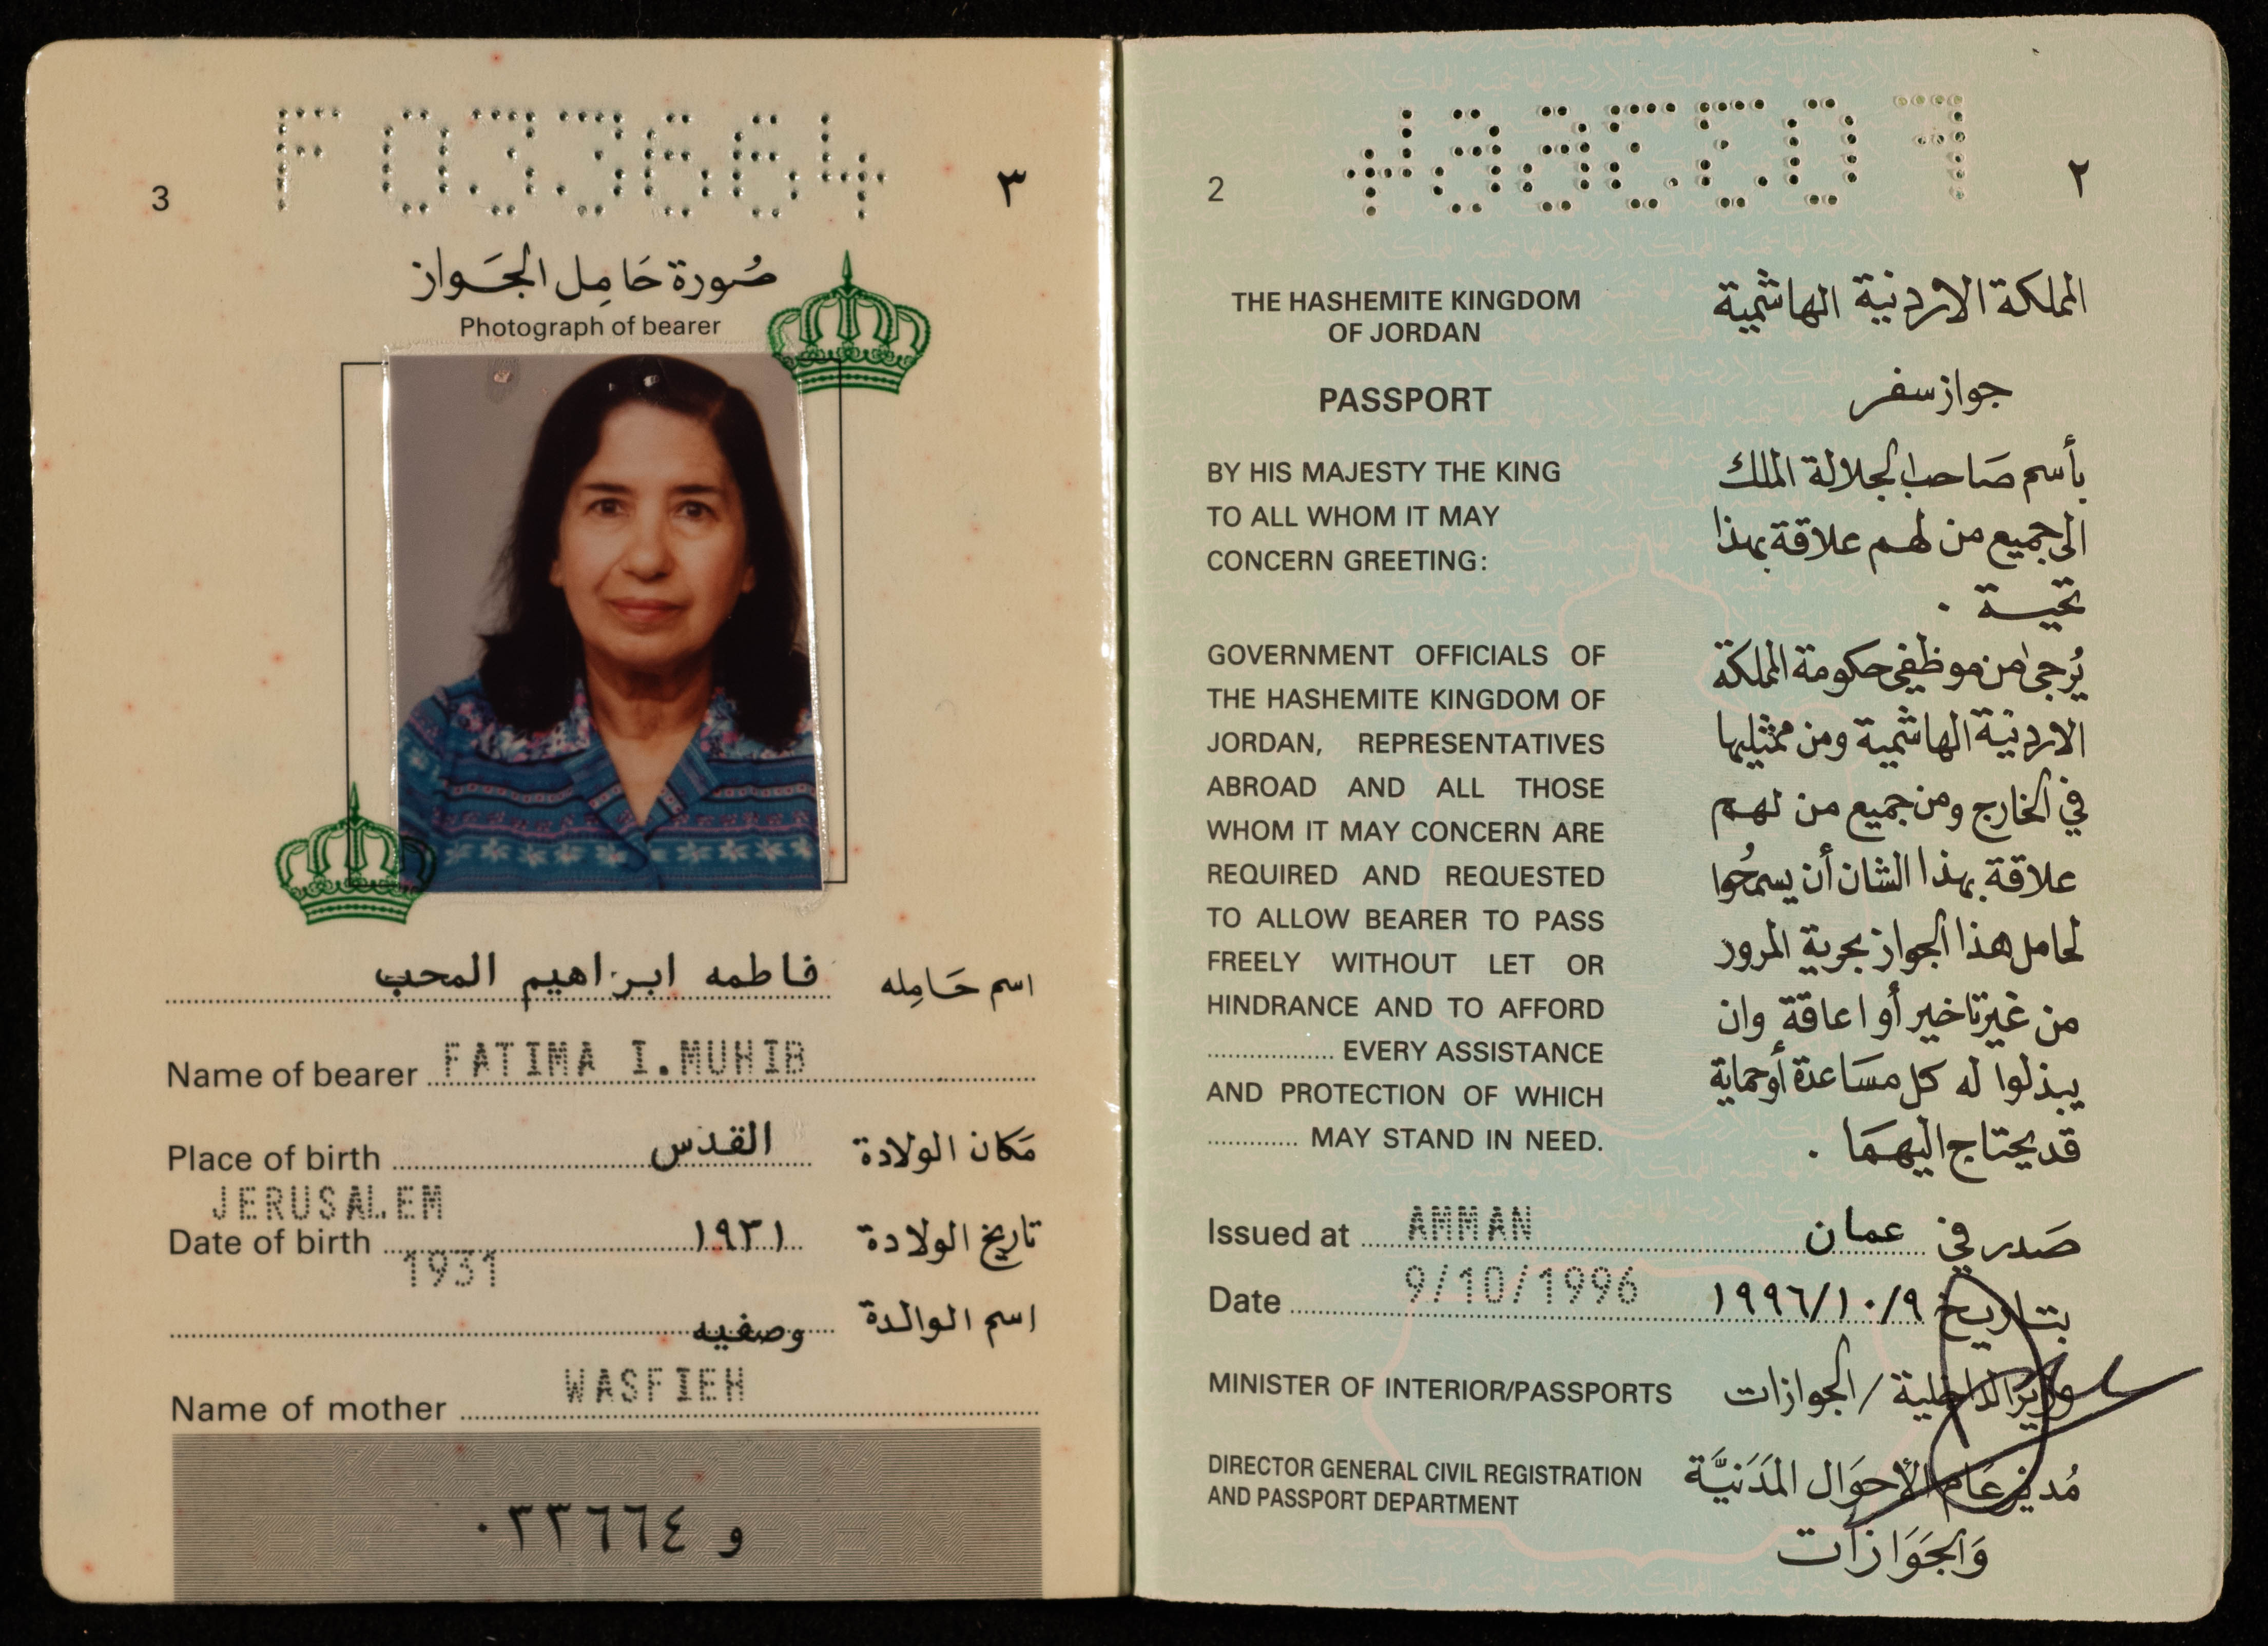 F033664
3
٣
صُورة حَامِل الجَواز
Photograph of bearer
اسم حَامِله فاطمه ابراهيم المحب
Name of bearer FATIMA I.MUHIB
Place of birth القدس مَكان الولادة
JERUSALEM
Date of birth ١٩٣١ تاريخ الولادة
1931
اسم الوالدة وصفيه
WASFIEH
Name of mother
KINGDOM
OF JORDAN
و ٠٣٣٦٦٤
F033664
2
٢
THE HASHEMITE KINGDOM
OF JORDAN
المملكة الاردنية الهاشمية
PASSPORT
جواز سفر
BY HIS MAJESTY THE KING
TO ALL WHOM IT MAY
CONCERN GREETING:
بأسم صَاحب الجلالة الملك
الى جميع من لهم علاقة بهذا
تحية .
GOVERNMENT OFFICIALS OF
THE HASHEMITE KINGDOM OF
JORDAN, REPRESENTATIVES
ABROAD AND ALL THOSE
WHOM IT MAY CONCERN ARE
REQUIRED AND REQUESTED
TO ALLOW BEARER TO PASS
FREELY WITHOUT LET OR
HINDRANCE AND TO AFFORD
.................. EVERY ASSISTANCE
AND PROTECTION OF WHICH
............. MAY STAND IN NEED.
يُرجى من موظفي حكومة المملكة
الاردنية الهاشمية ومن ممثليها
في الخارج ومن جميع من لهم
علاقة بهذا الشان أن يسمحُوا
لحامل هذا الجواز بحرية المرور
من غير تاخير أو اعاقة وان
يبذلوا له كل مسَاعدة أو حماية
قد يحتاج اليهمَا .
Issued at AMMAN صَدر في عمان
Date 9/10/1996 بتاريخ ١٩٩٦/١٠/٩
MINISTER OF INTERIOR/PASSPORTS وزير الداخلية / الجوازات
DIRECTOR GENERAL CIVIL REGISTRATION
AND PASSPORT DEPARTMENT
مُدير عَام الأحوَال المَدَنيَّة
وَالجَوَازَات